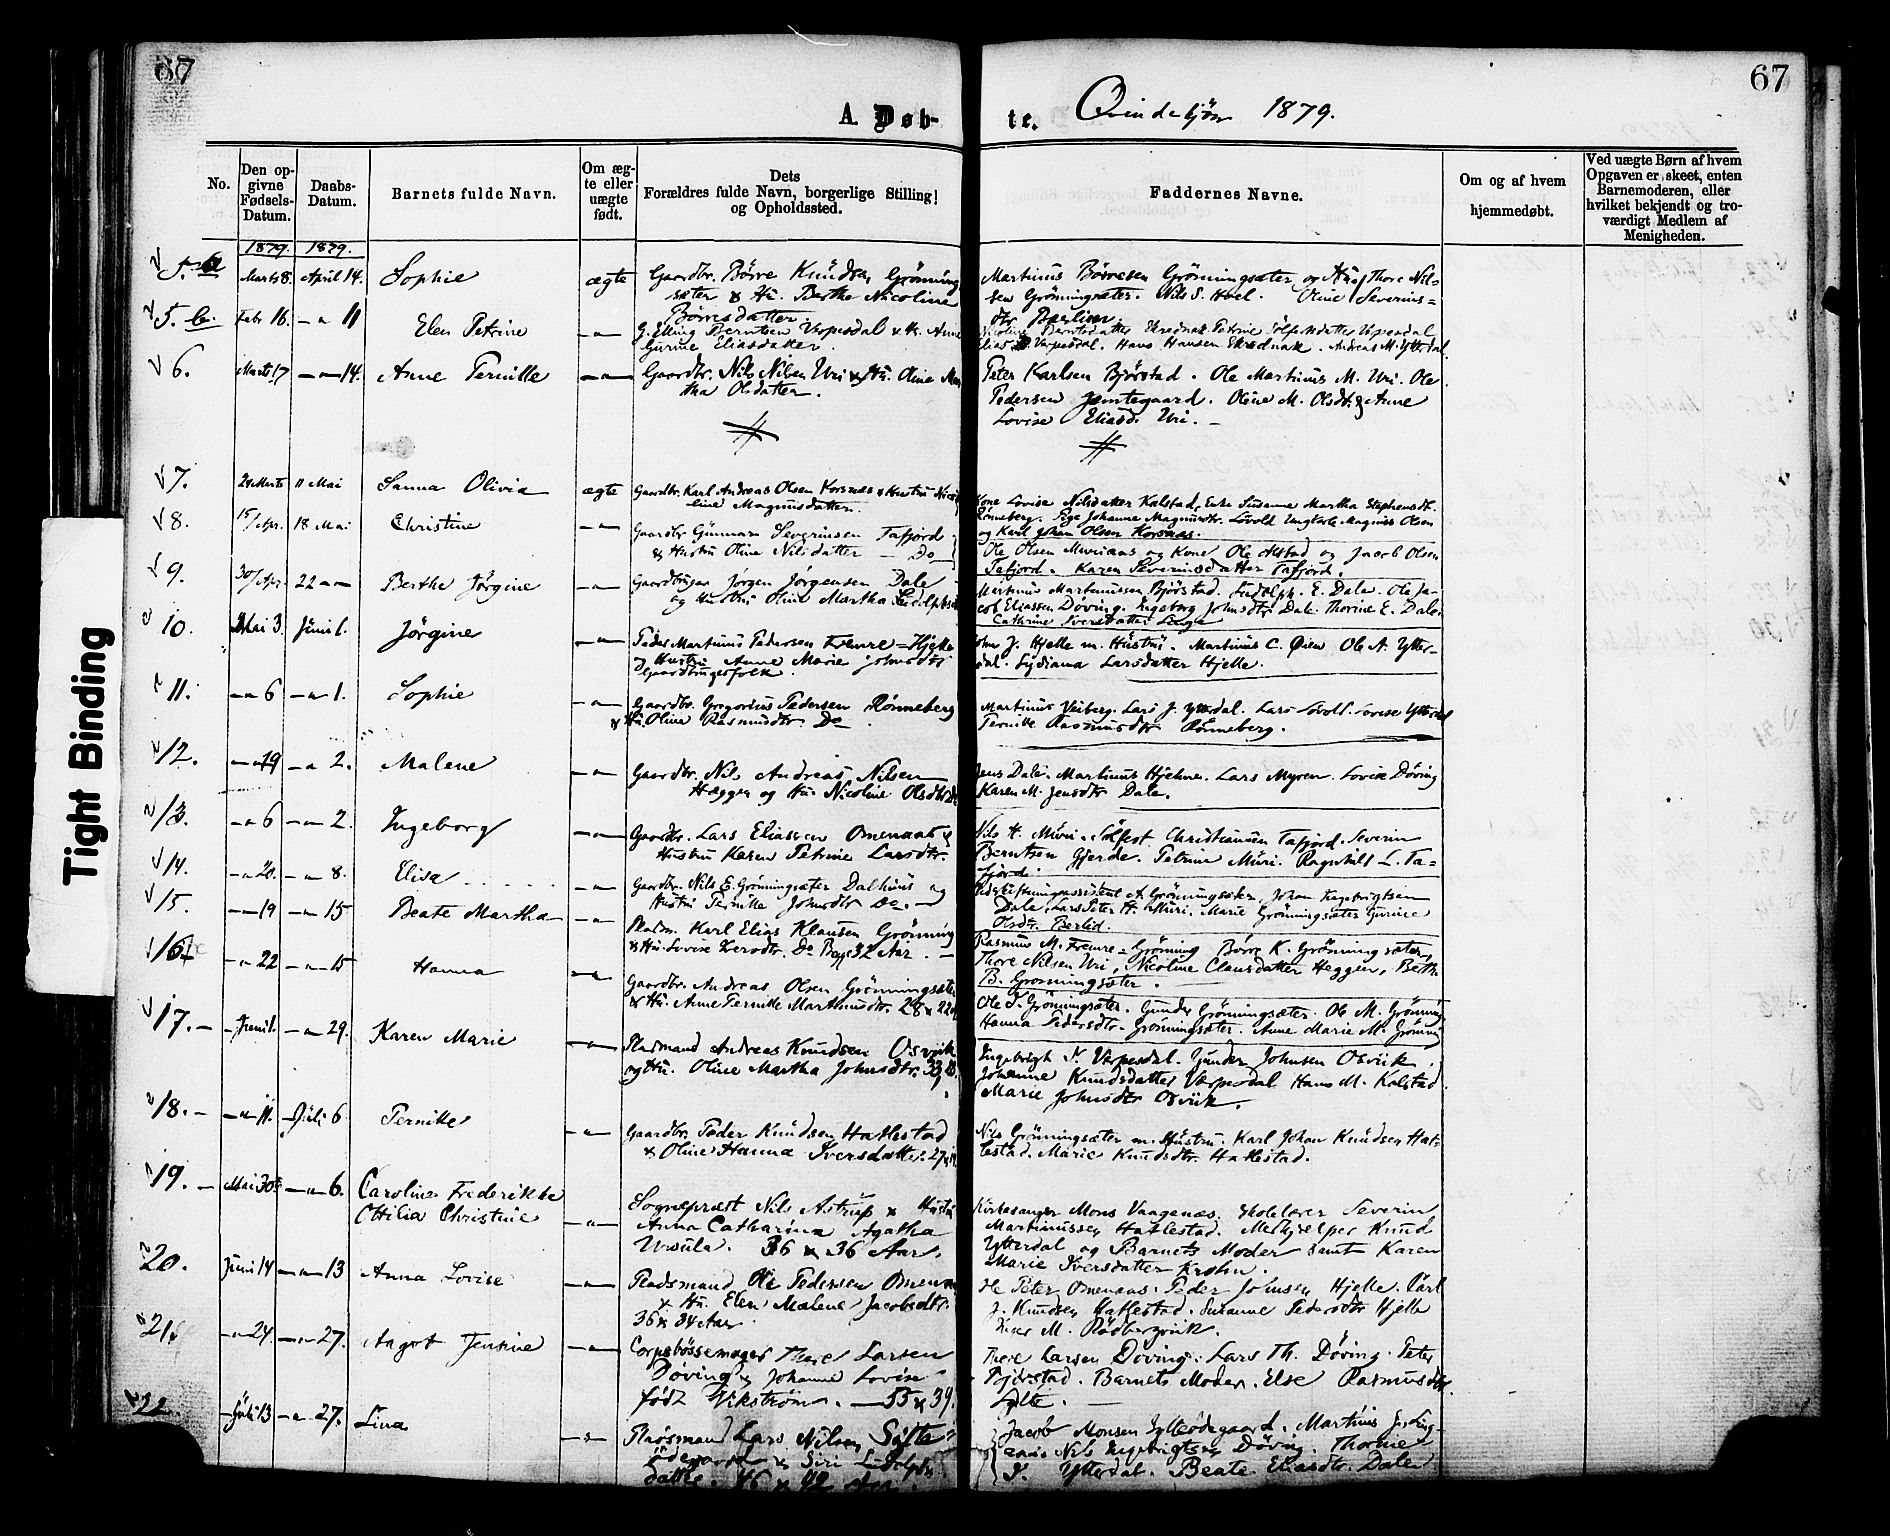 67
67
A. Døb-
te. Qvindekjøn 1879.
No.
Den opgivne Fødsels-Datum.
Daabs-Datum.
Barnets fulde Navn.
Om ægte eller uægte født.
Dets Forældres fulde Navn, borgerlige Stilling og Opholdssted.
Faddernes Navne.
Om og af hvem hjemmedøbt.
Ved uægte Børn af hvem Opgaven er skeet, enten Barnemoderen, eller hvilket bekjendt og troværdigt Medlem af Menigheden.
1879. 1879.
5. a Marts 8 April 14. Sophie ægte Gaardbr. Børre Knudsen Grønning
sæter & Hu. Berthe Nicoline
Børresdatter.
Martinus Børresen Grønningsæter og Hu, Thore Nil-
sen Grønningsæter. Nils S. Hoel. Oline Severins=
dtr
5. b. Febr 16. —"— 11 Elen Petrine —"— G. Elling Berntsen Verpesdal & H. Anne
Gurine Eliasdatter.
Verpesdal. Hans Hansen Skrednak. Andreas M. Ytterdal
6. Marts 17 —"— 14. Anne Pernille —"— Gaardbr. Nils Nilsen Uri & Hu. Oline Mar
tha Olsdatter.
Peter Karlsen Bjørstad. Ole Martinus M. Uri. Ole
Pedersen Jemtegaard. Oline M. Olsdtr & Anne
Lovise Eliasd. Uri.
7. 24 Marts 11 Mai Sanna Olivia ægte Gaardbr. Karl Andreas Olsen Korsnæs & Hustru Nico
line Magnusdatter.
Kone Lovise Nilsdatter Kalstad, Enke Susanne Martha Stephensdt.
Rønneberg. Pige Johanne Magnusdtr. Løvold Ungkarle Magnus Olsen
og Karl Johan Olsen Korsnæs.
8. 15/Apr. 18 Mai Christine —"— Gaardbr Gunnar Severinsen Tafjord
& Hustru Oline Nilsdatter — Do
Ole Olsen Muriaas og Kone, Ole Alstad og Jacob Olsen
Tafjord. Karen Severinsdatter Tafjord.
9. 30/Apr. 22 —"— Berthe Jørgine —"— Gaardbruger Jørgen Jørgensen Dale
og Hustru Oline Martha Ludolphsd
Martinus Martinussen Bjørstad. Ludolph. E. Dale. Ole Ja-
cob Eliassen Døving. Ingeborg Johnsdtr Dale. Thorine E. Dale.
Cathrine Iversdatter Linge
10. Mai 3. Juni 1. Jørgine —"— Peder Martinus Pedersen Fremre=Hjelle
og Hustru Anne Marie Johnsdtr
Gaardbrugerfolk.
John J. Hjelle m. Hustru. Martinus C. Øien Ole A. Ytter-
dal. Lydiana Larsdatter Hjelle.
11. —"— 6 —"— 1. Sophie —"— Gaardbr. Gregorius Pedersen Rønneberg
& Hu. Oline Rasmusdtr Do.
Martinus Veiberg. Lars J. Ytterdal. Lars Løvold. Lovise Ytterdal
Pernille Rasmusdtr Rønneberg.
12. —"— 19 —"— 2. Malene —"— Gaardbr. Nils Andreas Nilsen
Heggen og Hu. Nicoline Olsdtr Do
Jens Dale. Martinus Hjelme. Lars Myren. Lovise Døving
Karen M. Jensdtr Dale.
13. —"— 6 —"— 2. Ingeborg —"— Gaardbr. Lars Eliassen Omenaas &
Hustru Karen Petrine Larsdtr.
Nils H. Muri. Sølfest Christiansen Tafjord. Severin
Berntsen Gjerde. Petrine Muri. Ragnhild L. Ta-
fjord.
14. —"— 20. —"— 8. Elisa —"— Gaardbr. Nils E. Grønningsæter Dalhuus og
Hustru Pernille Johnsdtr Do.
A. Grønningsæter, Johan Ingebrigtsen
Dale, Lars Peter H. Muri. Marie Grønningsæter Gurine
Olsdtr. Berlid.
15. —"— 19 —"— 15 Beate Martha —"— Pladsm. Karl Elias Klausen Grønning
& Hu. Lovise Larsdtr. Do Begge 32 Aar.
Rasmus M. Fremre-Grøning Børre K. Grønningsæter,
Thore Nilsen Uri, Nicoline Clausdatter Heggen, Berthe
B. Grønningsæter.
16. —"— 22 —"— 15 Hanna —"— Gaardbr. Andreas Olsen Grønningsæter
& Hu. Anne Pernille Martinusdtr. 28 & 22
Ole I. Grønningsæter. Gunder Grønningsæter. Ole M. Grøning
Hanna Pedersdtr. Grønningsæter. Anne Marie M. Grøning
17. Juni 1. —"— 29. Karen Marie —"— Pladsmand Andreas Knudsen Osvik
og Hu. Oline Martha Johnsdtr. 33
Ingebrigt K. Verpesdal. Gunder Johnsen Osvik.
Johanne Knudsdatter Verpesdal Hans M. Kalstad.
Marie Johnsdtr Osvik.
18. —"— 11. Juli 6 Pernille —"— Gaardbr. Peder Knudsen Hatlestad
& Oline Hanna Iversdatter. 27
Nils Grønningsæter m. Hustru. Karl Johan Knudsen Hat-
lestad. Marie Knudsdtr. Hatlestad.
19. Mai 30 —"— 6. Caroline Frederikke
Ottilia Christine —"— Sognepræst Nils Astrup & Hustru
Anna Catharina Agatha
Ursula. 36 & 36 Aar.
Kirkesanger Mons Vaagenæs. Skolelærer Severin
Martinussen Hatlestad. Medhjelper Knud
Ytterdal og Barnets Moder samt Karen
Marie Iversdatter Krohn.
20. Juni 14 —"— 13 Anna Lovise —"— Pladsmand Ole Pedersen Omenaas
& Hu. Elen Malene Jacobsdtr.
36 & 34 Aar
Ole Peter Omenaas. Peder Johnsen Hjelle. Karl
J. Knudsen Hatlestad. Susanne Pedersdtr Hjelle
M. Rødbergvik.
21. —"— 24. —"— 27. Aagot Jensine —"— Corpsbøssemager Thore Larsen
Døving & Johanne Lovise
født Vikstrøm. — 55 & 39.
Thore Larsen Døving. Lars Th. Døving. Peter
Bjørstad. Barnets Moder. Else Rasmusdtr
Sylte.
22. Juli 13 —"— 27. Lina —"— Pladsmand Lars Nilsen Sylte
ødegaard & Siri Ludolphs
datter. 46 & 42 Aar.
Jacob Monsen Sylteødegaard. Martinus J. Ling-
Nils Ingebrigtsen Døving. Thorine
I. Ytterdal. Beate Eliasdtr. Dale
Tight Binding